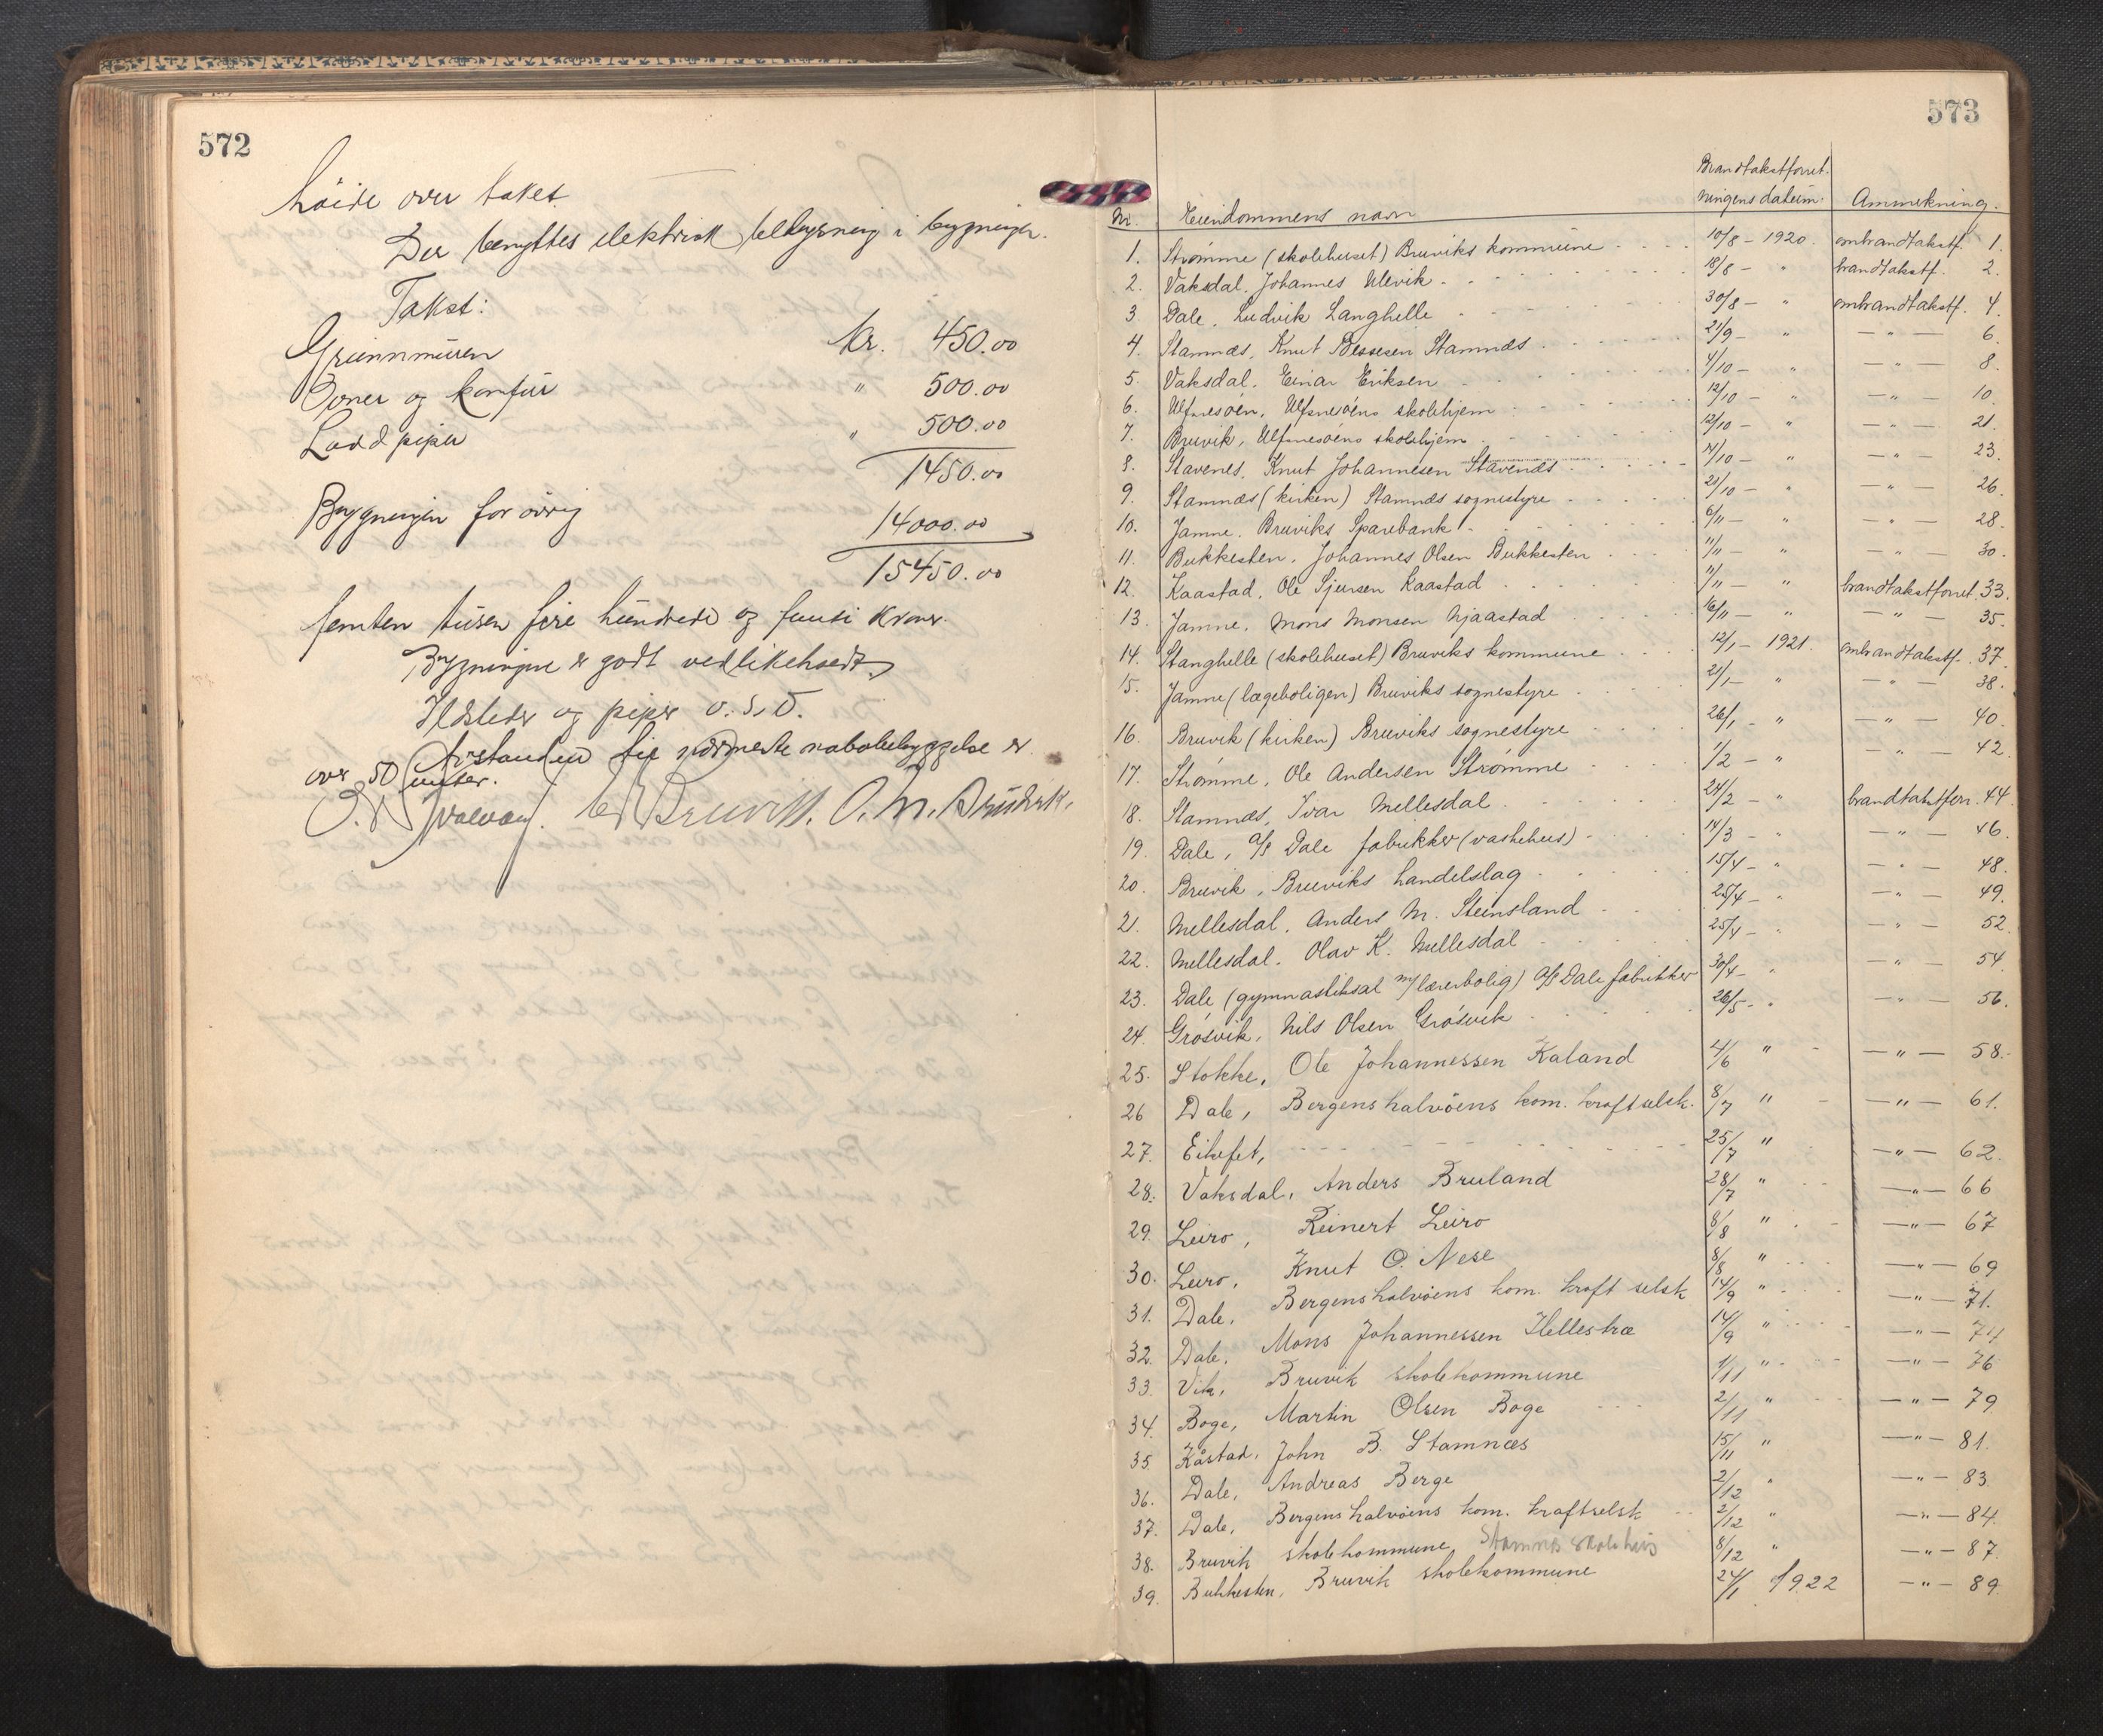 572
höide over taket.
Der benyttes elektrisk belysning i bygningen.
Takst:
Grunnmuren kr. 450.00
Ovner og komfur " 500.00
Lodd piper " 500.00
1450.00
Bygningen for övrig 14000.00
15450.00
femten tusen fire hundrede og femti kroner.
Bygningene er godt vedlikeholdt
Ildsteder og piper o.s.v.
Avstanden til nærmeste nabobebyggelse er
over 50 meter.
Bruvik. O. M.
573
Nr. Eiendommens navn Brandtakstforret-
ningens datum. Anmerkning.
1. Strømme (skolehuset) Bruviks kommune 10/8 - 1920. ombrandtakstf. 1.
2. Vaksdal. Johannes Ulevik 18/8 - " brandtakstf. 2.
3 Dale, Ludvik Langhelle 30/8 - " ombrandtakstf. 4.
4. Stamnæs, Knut Bessesen Stamnæs 21/9 - " — " — 6.
5. Vaksdal. Einar Eriksen 4/10 - " — " — 8.
6. Ulfnesöen, Ulfsnesöens skolehjem 12/10 - " — " — 10.
7. Bruvik, Ulfsnesöens skolehjem 12/10 - " — " — 21.
8. Stavenes, Knut Johannesen Stavenæs 14/10 - " — " — 23.
9. Stamnæs (kirken) Stamnæs sognestyre 21/10 - " — " — 26.
10. Jamne. Bruviks Sparebank 6/11 - " — " — 28.
11. Bukkesten. Johannes Olsen Bukkesten 11/11 - " — " — 30.
12. Kaastad, Ole Sjursen Kaastad 11/11 - " brandtakstforret. 33.
13. Jamne. Mons Monsen Mjaastad 16/11 - " — " — 35.
14. Stanghelle (skolehuset) Bruviks kommune 12/1 - 1921. ombrandtakstf. 37.
15. Jamne (lægeboligen) Bruviks sognestyre 21/1 - " — " — 38.
16. Bruvik (kirken) Bruviks sognestyre 26/1 - " — " — 40.
17. Strømme. Ole Andersen Strømme 1/2 - " — " — 42.
18. Stamnæs, Ivar Mellesdal 24/2 - " brandtakstforr. 44.
19. Dale, A/S Dale fabrikker (vaskehus) 14/3 - " — " — 46.
20. Bruvik, Bruviks handelslag 15/4 - " — " — 48.
21. Mellesdal. Anders M. Steinsland 25/4 - " — " — 49.
22. Mellesdal. Olav K. Mellesdal 25/4 - " — " — 52.
23. Dale (gymnastiksal m/lærerbolig) A/S Dale fabrikker 30/4 - " — " — 54.
24. Grøsvik, Nils Olsen Grøsvik 26/5 - " — " — 56.
25. Stokke, Ole Johannessen Kaland 4/6 " — " — 58.
26 Dale, Bergenshalvöens kom. kraftselsk. 8/7 " — " — 61.
27. Eikefet, 25/7 " — " — 62.
28. Vaksdal, Anders Bruland 28/7 " — " — 66
29. Leiro, Reinert Leiro 8/8 " — " — 67
30. Leiro, Knut O. Nese 8/8 " — " — 69
31. Dale, Bergenshalvöens kom. kraft selsk 14/9 " — " — 71.
32. Dale, Mons Johannessen Hellestræ 14/9 " — " — 74
33. Vik, Bruvik skolekommune 1/11 " — " — 76
34. Boge, Martin Olsen Boge 2/11 " — " — 79
35. Kåstad, John B. Stamnæs 15/11 " — " — 81.
36. Dale, Andreas Berge 2/12 " — " — 83.
37. Dale, Bergenshalvöens kom. kraftselsk 2/12 " — " — 84.
38. Bruvik skolekommune, Stamnes skolehus 8/12 " — " — 87.
39. Bukkesten, Bruvik skolekommune 24/1 1922 — " — 89.